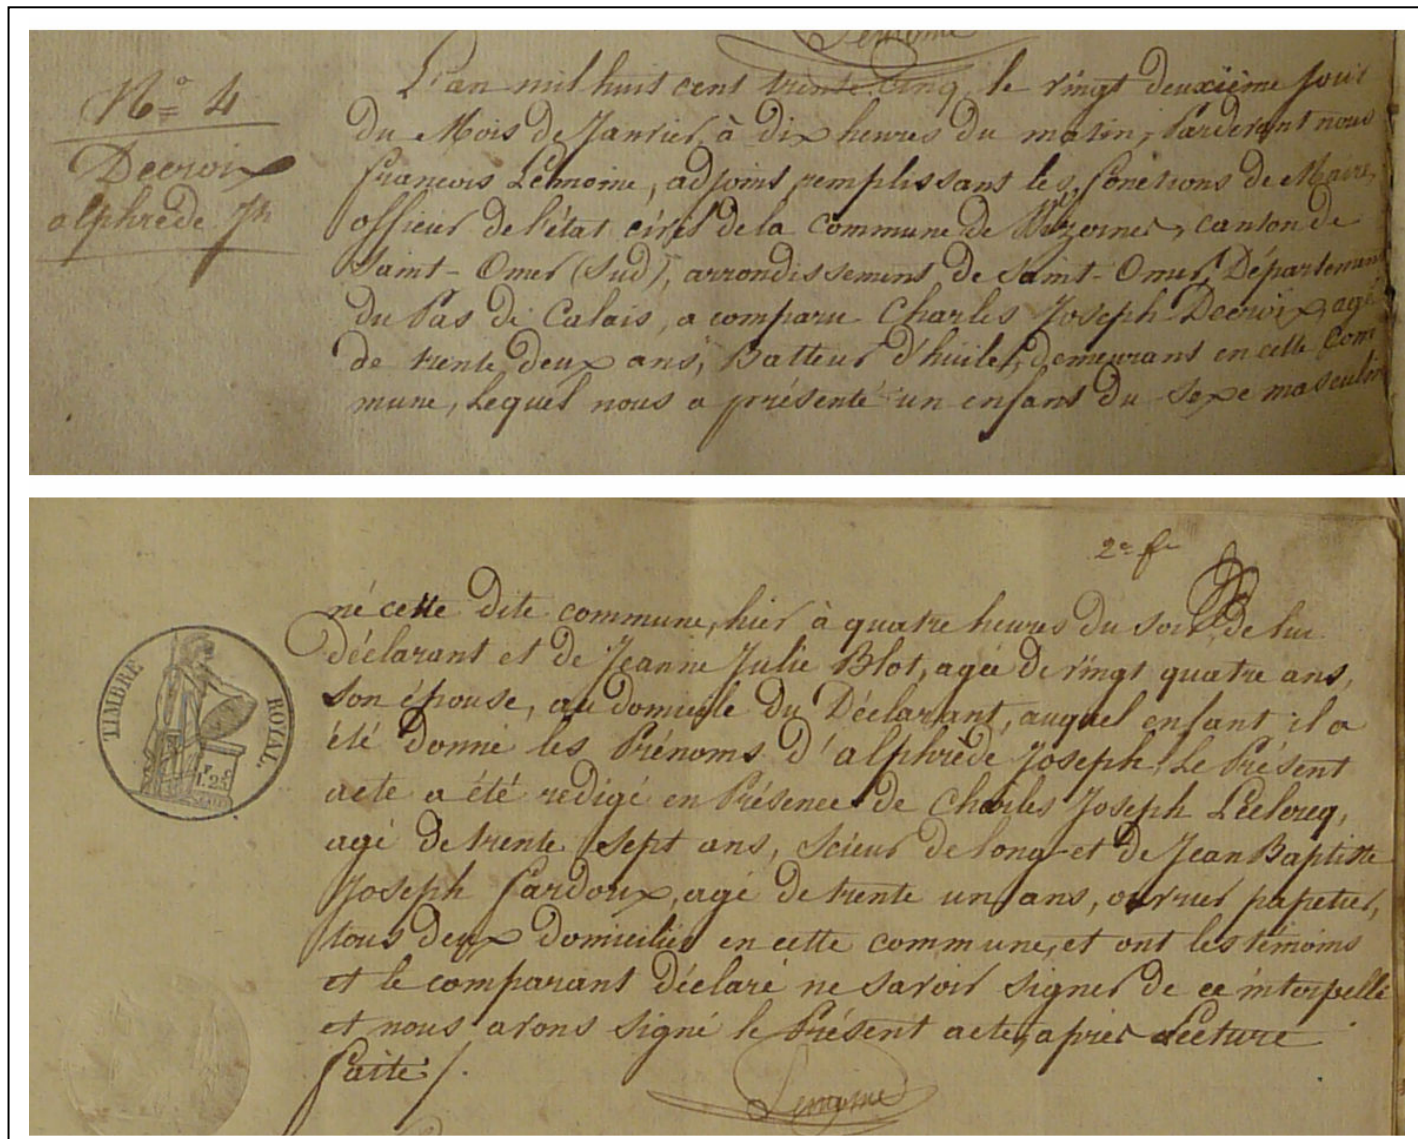 Lemoine
N° 4
Decroix
alphrède Jh
L'an mil huit cent trente-Cinq, le vingt deuxième jour
du Mois de Janvier, à dix heures du matin, Pardevant nous
françois Lemoine, adjoint remplissant les fonctions de Maire,
officier de l'état civil de la Commune de Wizernes, canton de
Saint-Omer (Sud), arrondissement de Saint-Omer, Département
du Pas de Calais, a comparu Charles Joseph Decroix, agé
de trente deux ans, Batteur d'huile, demeurant en cette Com
mune, Lequel nous a présenté un enfant du sexe masculin
2e f.
né cette dite commune, hier à quatre heures du soir, de lui
déclarant et de Jeanne Julie Blot, agée de vingt quatre ans,
son épouse, au domicile du Déclarant, auquel enfant il a
été donné les Prénoms d'alphrède Joseph, Le Présent
acte a été redigé en Présence de Charles Joseph Leclercq,
agé de trente sept ans, scieur de long et de Jean Baptiste
Joseph Cardoux, agé de trente un ans, ouvrier papetier,
tous deux domicilié en cette commune, et ont les témoins
et le comparant déclaré ne savoir signer de ce interpellé
et nous avons signé le Présent acte, après Lecture
faite /.
Lemoine
TIMBRE ROYAL.
F. C.
1.25